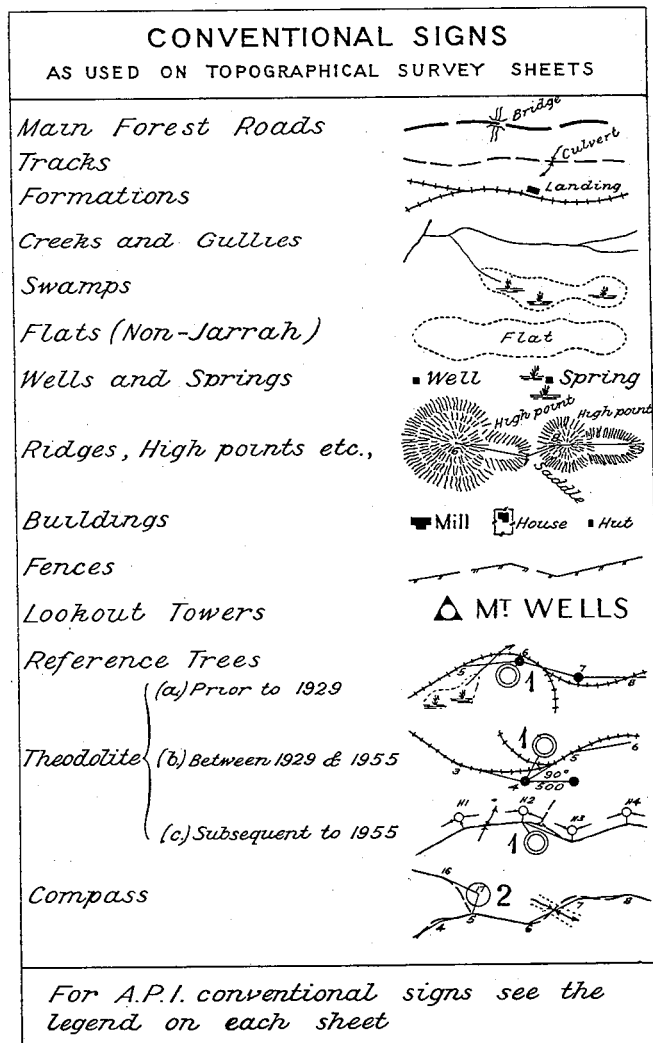 CONVENTIONAL SIGNS
AS USED ON TOPOGRAPHICAL SURVEY SHEETS
Main Forest Roads
Bridge
Tracks
Culvert
Formations
Landing
Creeks and Gullies
Swamps
Flats (Non-Jarrah)
Flat
Wells and Springs
Well
Spring
Ridges, High points etc.,
High point
High point
Saddle
Buildings
Mill House Hut
Fences
Lookout Towers
MT WELLS
Reference Trees
(a) Prior to 1929
5 6 1 7 8
Theodolite
(b) Between 1929 & 1955
1
3 4 5 6
90°
500
(c) Subsequent to 1955
H1 H2 H3 H4
1
Compass
16 17 2
4 5 6 7 8
For A.P.I. conventional signs see the
legend on each sheet